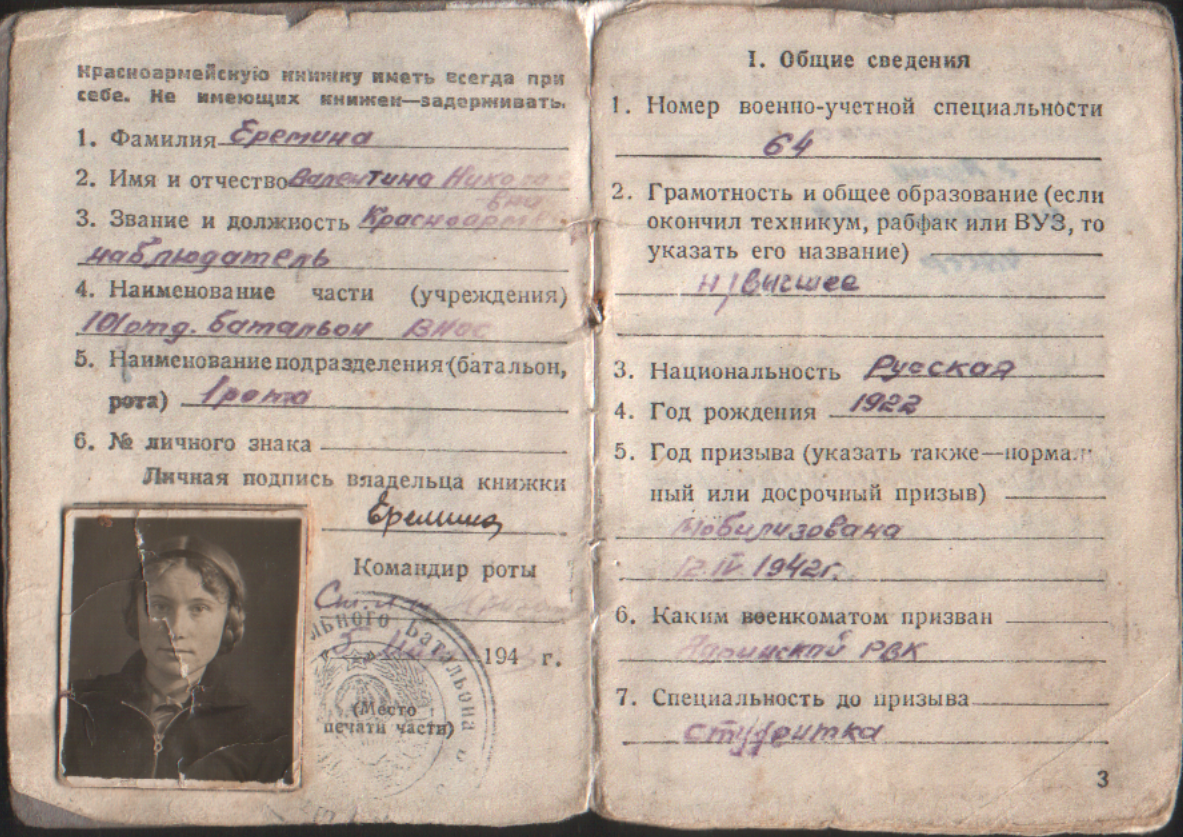 Красноармейскую книжку иметь всегда при
себе. Не имеющих книжек—задерживать.
1. Фамилия Еремина
2. Имя и отчество Валентина Николае
вна
3. Звание и должность Красноарм.
наблюдатель
4. Наименование части (учреждения)
101 отд. батальон ВНОС
5. Наименование подразделения (батальон,
рота) 1 рота
6. № личного знака
Личная подпись владельца книжки
Еремина
Командир роты
Ст. л-т
льного батальона
5 194 г.
(Место
печати части)
I. Общие сведения
1. Номер военно-учетной специальности
64
2. Грамотность и общее образование (если
окончил техникум, рабфак или ВУЗ, то
указать его название)
н/высшее
3. Национальность Русская
4. Год рождения 1922
5. Год призыва (указать также—нормаль-
ный или досрочный призыв)
Мобилизована
12.IV.1942г.
6. Каким военкоматом призван
РВК
7. Специальность до призыва
студентка
3